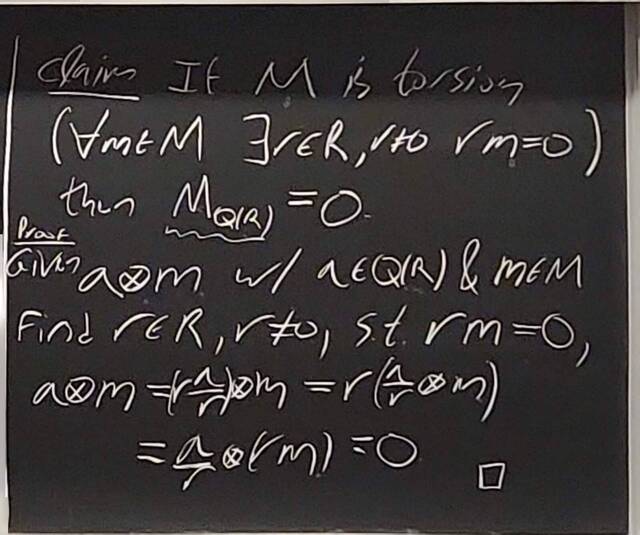 Claim If M is torsion
(∀m∈M ∃r∈R, r≠0 rm=0)
then M_{Q(R)} = 0.
Proof
Given a⊗m w/ a∈Q(R) & m∈M
Find r∈R, r≠0, s.t. rm=0,
a⊗m = (r a/r)⊗m = r(a/r ⊗ m)
= a/r ⊗(rm) = 0 □